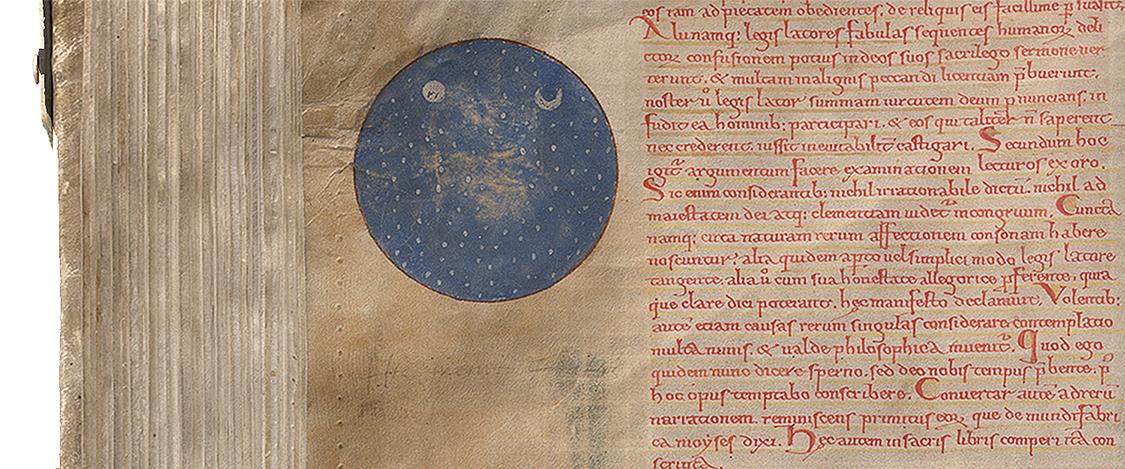 eos tam ad pietatem obedientes. de reliquis eis facillime ꝑsuasit.
Alii namq; legislatores fabulas sequentes humanoꝝ deli
ctoꝝ confusionem potius in deos suos sacrilego sermone ver
terunt. & multam malignis peccandi licentiam p̄buerunt.
noster ū legislator summam uirtutem deum ꝓnuncians. in
fudit ea hominib; participari. & eos qui talit̄ n̄ saperent
nec crederent. iussit ineuitabilit̄ castigari. Secundum hoc
igit᷑ argumentum facere examinationem lecturos exoro.
Sic enim considerantib; nichil irrationabile dictū. nichil ad
maiestatem dei atq; clementiam uidet᷑ incongruum. Cuncta
namq; circa naturam rerum affectionem consonam habere
noscuntur; alia quidem aperto uel simplici modo legislatore
tangente; alia ū cum sua honestate allegorice p̄ferente. quia
que clare dici poterant. hęc manifesto declarauit. Volentib;
autē etiam causas rerum singulas considerare. contemplatio
multa nimis. & ualde philosophica inuenit᷑. Quod ego
quidem nunc dicere sperno. sed deo nobis tempus p̄bente. ꝑ
hoc opus temptabo conscribere. Conuertar autē ad rerū
narrationem. reminiscens primitus eoꝝ que de mundi fabri
ca moyses dixit. Hęc autem in sacris libris comperi ita con
scripta.